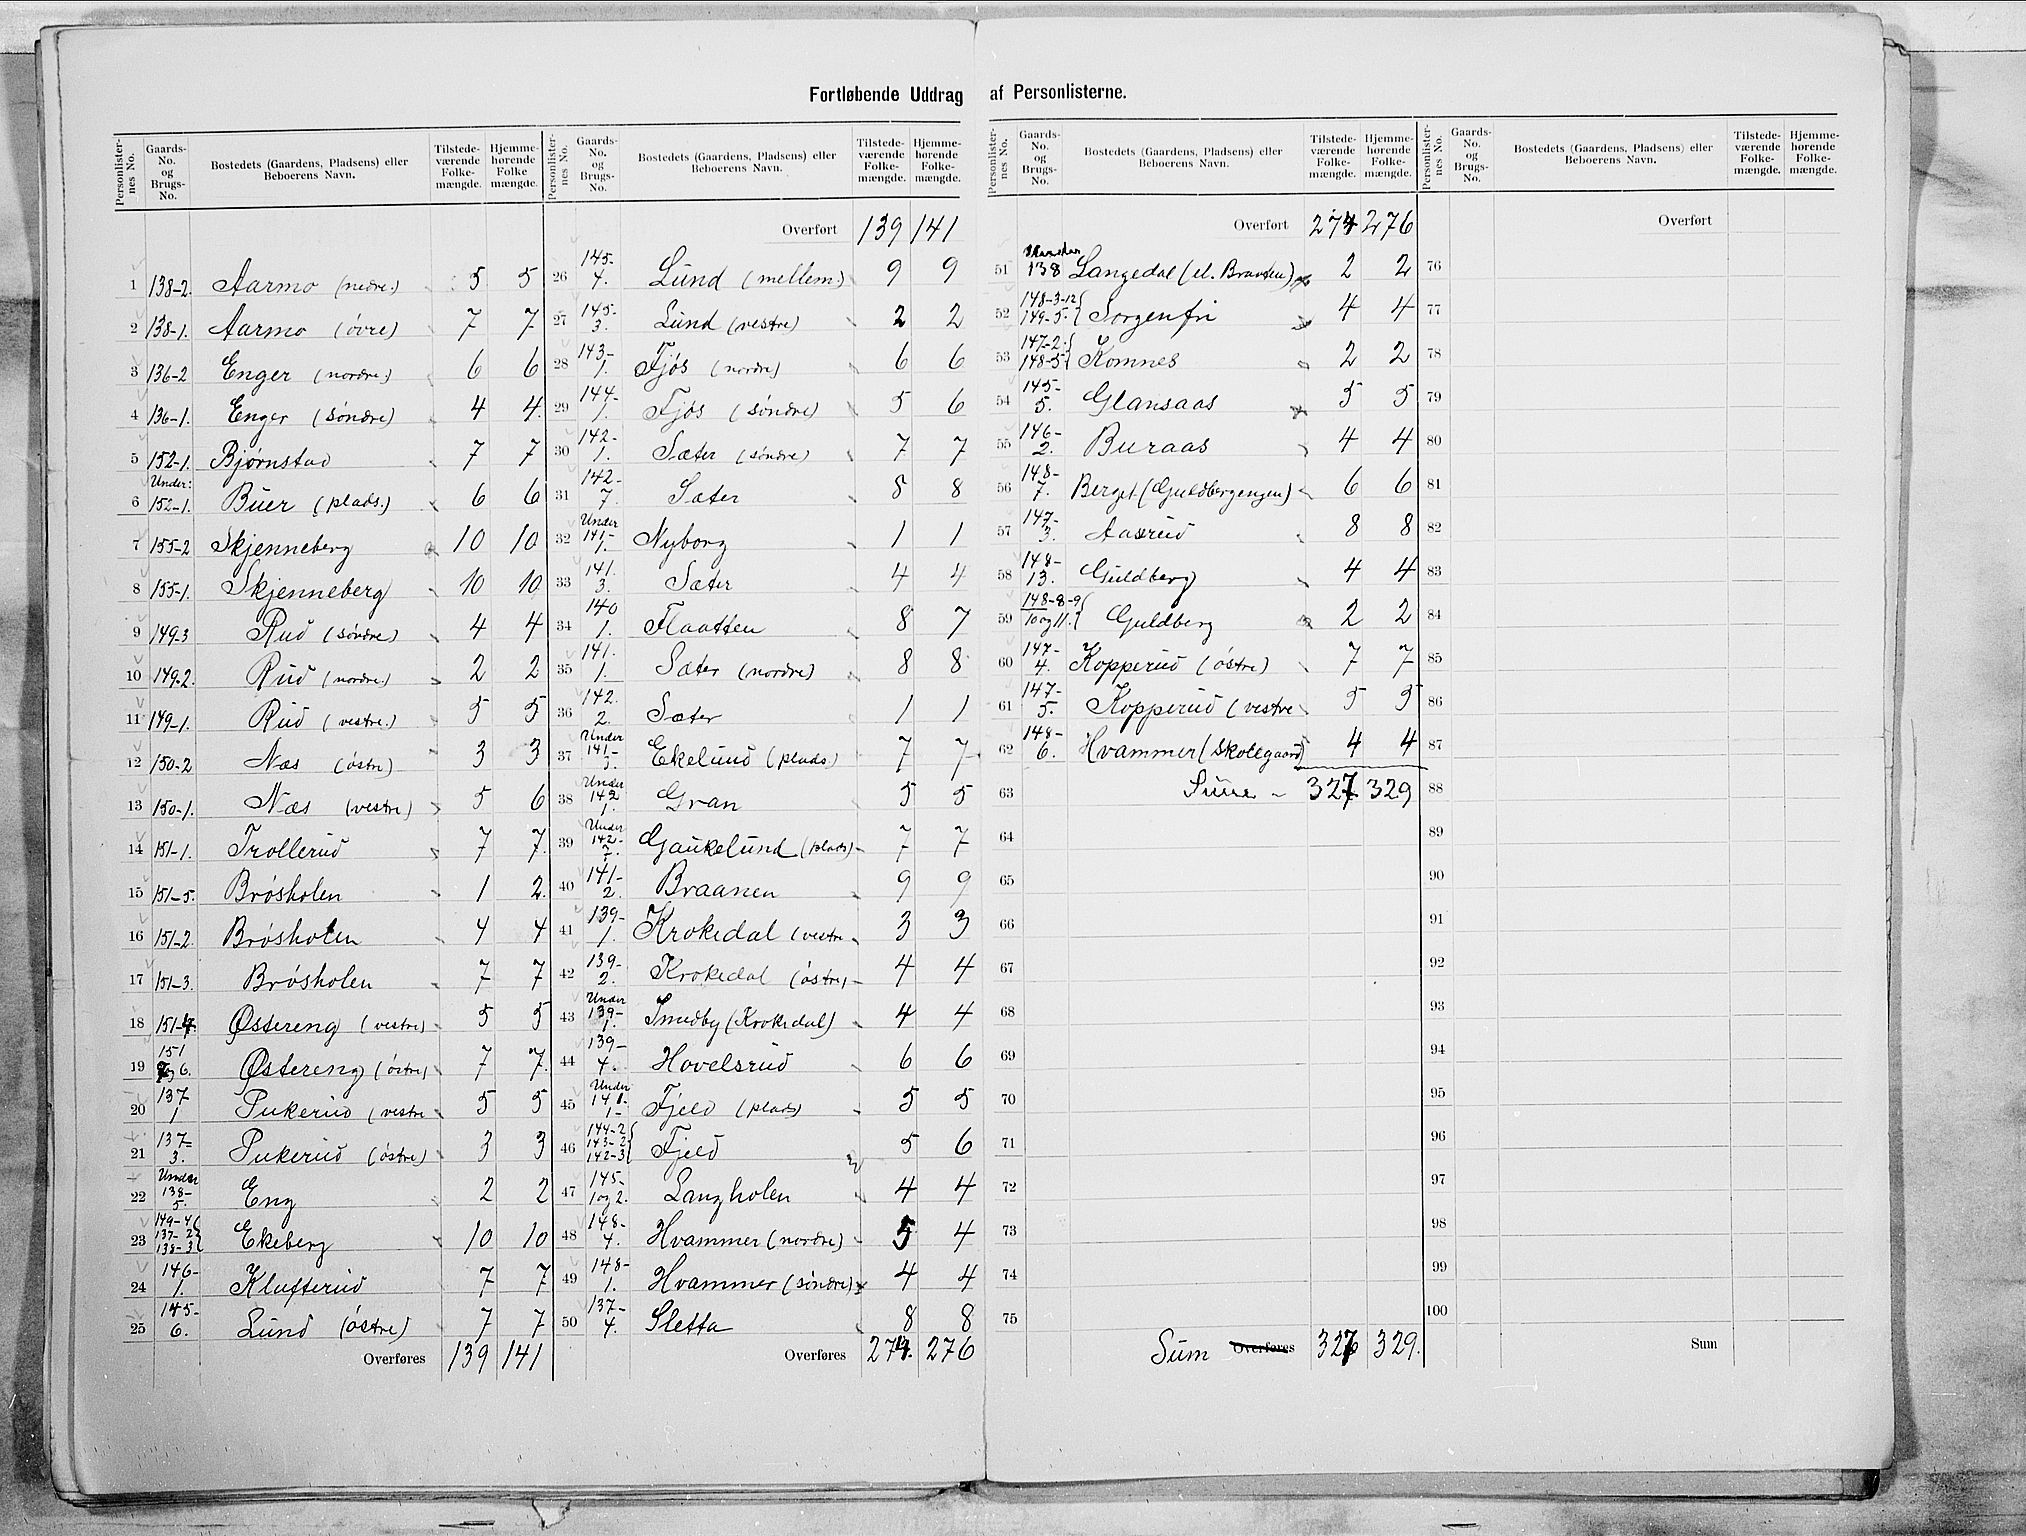 Fortløbende Uddrag af Personlisterne.
Personlister-nes No. Gaards-No. og Brugs-No. Bostedets (Gaardens, Pladsens) eller Beboerens Navn. Tilstede-værende Folke-mængde. Hjemme-hørende Folke mængde.
1 138-2. Aarmo (nedre.) 5 5
2 138-1. Aarmo (övre) 7 7
3 136-2 Enger (nordre.) 6 6
4 136-1. Enger (söndre) 4 4.
5 152-1. Bjørnstad 7 7
6 Under: 152-1. Buer (plads.) 6 6
7 155-2 Skjenneberg 10 10
8 155-1. Skjenneberg 10 10
9 149-3 Rud (söndre) 4 4
10 149-2. Rud (nordre.) 2 2
11 149-1. Rud (vestre.) 5 5
12 150-2 Næs (östre) 3 3
13 150-1. Næs (vestre) 5 6
14 151-1. Trollerud 7 7.
15 151-5. Brøsholen 1 2.
16 151-2. Brøsholen 4 4
17 151-3. Brøsholen 7 7
18 151-4. Østereng (vestre) 5 5
19 151 og 6. Østereng (östre) 7 7.
20 137 1 Pukerud (vestre 5 5
21 137- 3. Pukerud (östre) 3 3
22 Under 138- 5. Eng 2 2
23 149-4 137-2 138-3 Ekeberg 10 10
24 146- 1. Klufterud 7 7
25 145- 6. Lund (östre) 7 7
Overføres 139 141
Personlister-nes No. Gaards-No. og Brugs-No. Bostedets (Gaardens, Pladsens) eller Beboerens Navn. Tilstede-værende Folke-mængde. Hjemme-hørende Folke-mængde.
Overført 139 141
26 145- 4. Lund (mellem) 9 9
27 145- 3. Lund (vestre) 2 2
28 143- 1. Fjös (nordre) 6 6
29 144- 1. Fjös (söndre) 5 6
30 142- 1. Sæter (söndre) 7 7
31 142- 7. Sæter 8 8
32 Under 141- 1. Nyborg 1 1
33 141. 3. Sæter 4 4
34 140 1. Flaatten 8 7
35 141. 1. Sæter (nordre) 8 8
36 142. 2. Sæter 1 1
37 Under 141- Ekelund (plads) 7 7
38 Under 142 1. Gran 5 5
39 Under 142- 7. Gaukelund (plads) 7 7
40 141- 2. Braanen 9 9
41 139- 1. Krokedal (vestre 3 3
42 139- 2. Krokedal (östre) 4 4
43 Under 139- 1. Smedby (Krokedal) 4 4
44 139- 4. Hovelsrud 6 6
45 Under 141- 1- Fjeld (plads) 5 5
46 144-2 143-2 142-3 Fjeld 5 6
47 145- 1 og 2. Langholen 4 4
48 148- 4. Hvammer (nordre) 5 4
49 148- 1. Hvammer (söndre) 4 4
50 137- 4. Sletta 8 8
Overføres 274. 276
Personlister-nes No. Gaards-No. og Brugs-No. Bostedets (Gaardens, Pladsens) eller Beboerens Navn. Tilstede-værende Folke-mængde. Hjemme-hørende Folke-mængde.
Overført 274 276
51 138 Langedal (el. Braaten) 2 2
52 148-3-12 149-5. Sorgenfri 4 4
53 147-2. 148-5 Komnes 2 2
54 145- 5. Glansaas 5 5
55 146- 2. Buraas 4 4
56 148- 7. Berget (Guldbergengen) 6 6
57 147- 3. Aasrud 8 8
58 148- 13. Guldberg 4 4
59 148-8-9 10 og 11. Guldberg 2 2
60 147- 4. Kopperud (östre) 7 7
61 147- 5. Kopperud (vestre 5 5
62 148- 6. Hvammer (Skolegaard) 4 4
63 Sum 327 329
64
65
66
67
68
69
70
71
72
73
74
75
Sum Overføres 327 329.
Personlister-nes No. Gaards-No. og Brugs-No. Bostedets (Gaardens, Pladsens) eller Beboerens Navn. Tilstede-værende Folke-mængde. Hjemme-hørende Folke-mængde.
Overført
76
77
78
79
80
81
82
83
84
85
86
87
88
89
90
91
92
93
94
95
96
97
98
99
100
Sum